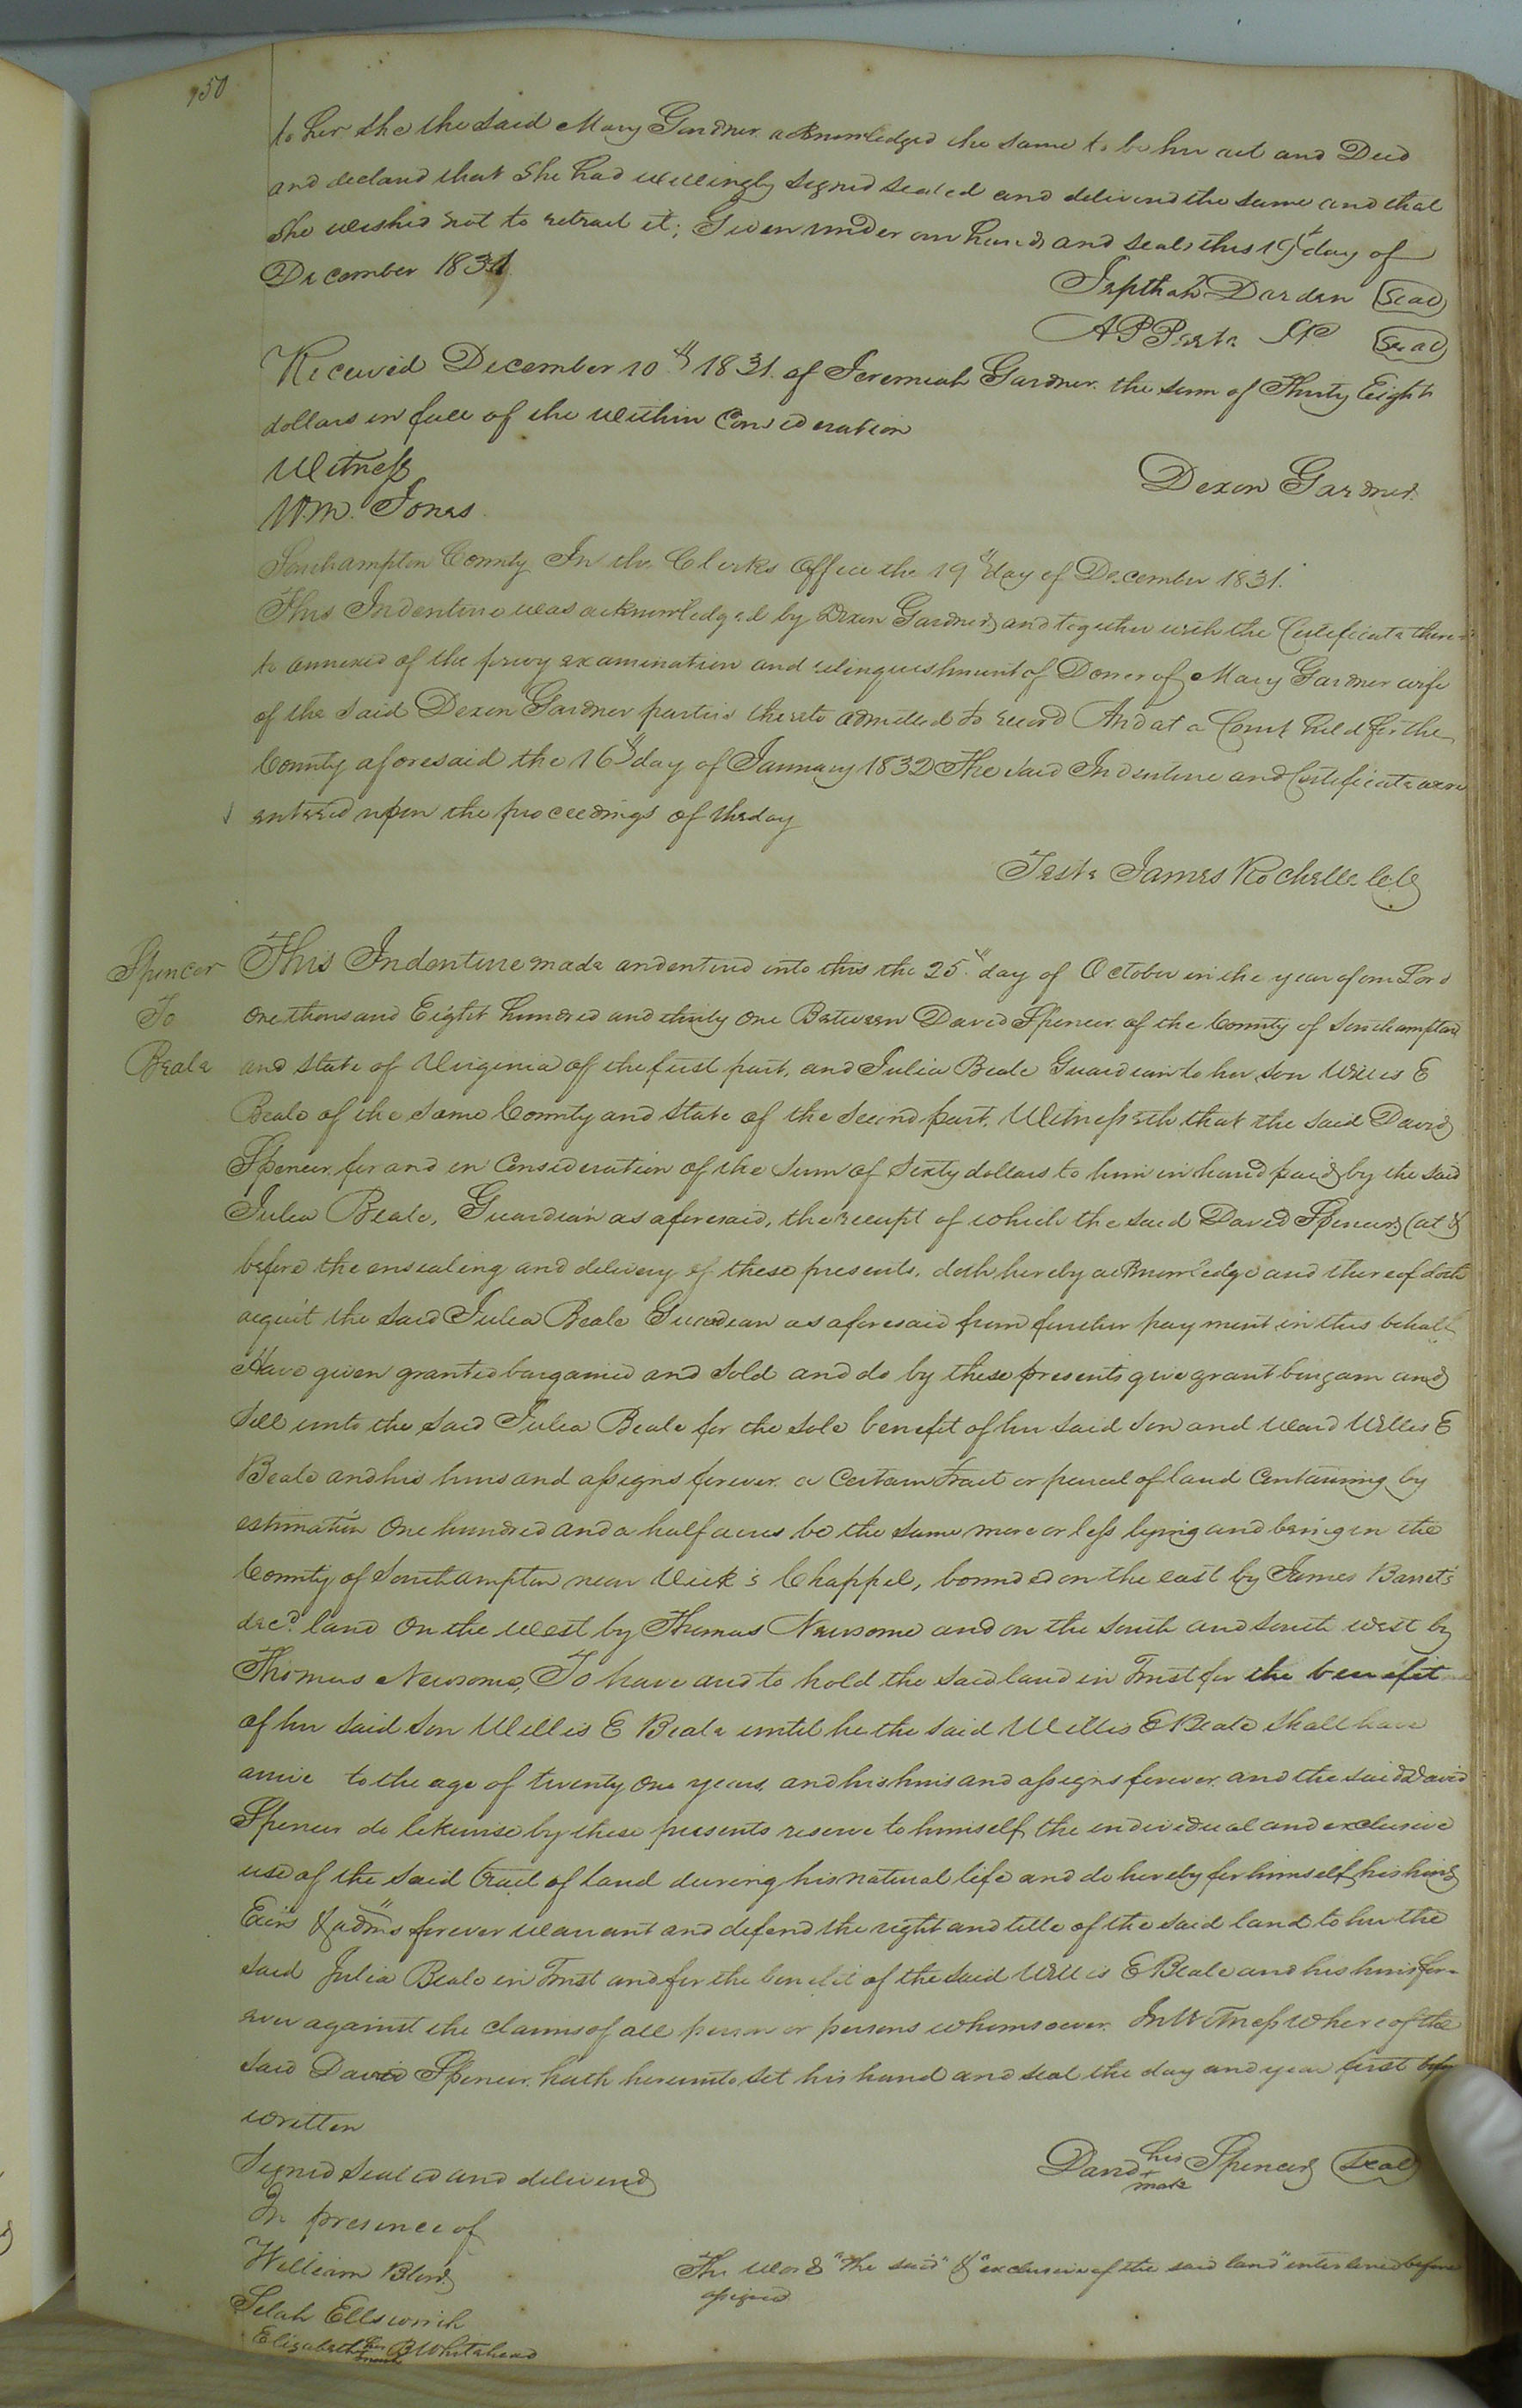 950
to her she the said Mary Gardner acknowledged the same to be her act and Deed
and declared that She had willingly signed sealed and delivered the same and that
She wished not to retract it; Given under our hands and seals this 19th day of
December 1831
Jepthah Darden Seal
A P Peete JP Seal
Received December 10th 1831. of Jeremiah Gardner the sum of Thirty Eight
dollars in full of the within Consideration
Witness
Dixon Gardner
Wm. Jones
Southampton County In the Clerks Office the 19th day of December 1831.
This Indenture was acknowledged by Dixon Gardner and together with the Certificate there-
to annexed of the privy examination and relinquishment of Dower of Mary Gardner wife
of the said Dixon Gardner parties thereto admitted to record And at a Court held for the
County aforesaid the 16th day of January 1832 The said Indenture and Certificate were
entered upon the proceedings of the day
Teste James Rochelle C.C.
Spencer
To
Beale
This Indenture made and entered into this the 25th day of October in the year of our Lord
One thousand Eight hundred and thirty One Between David Spencer of the County of Southampton
and State of Virginia of the first part, and Julia Beale Guardian to her son Willis E
Beale of the same County and State of the second part, Witnesseth that the said David
Spencer for and in Consideration of the sum of Sixty dollars to him in hand paid by the said
Julia Beale, Guardian as aforesaid, the receipt of which the said David Spencer (at &
before the ensealing and delivery of these presents, doth hereby acknowledge and thereof doth
acquit the said Julia Beale Guardian as aforesaid from further payment in this behalf
Have given granted bargained and sold and do by these presents give grant bargain and
Sell unto the said Julia Beale for the sole benefit of her said son and ward Willis E
Beale and his heirs and assigns forever a Certain tract or parcel of land Containing by
estimation One hundred and a half acres be the same more or less lying and being in the
County of Southampton near Vick's Chappel, bounded on the east by James Barret's
decd. land On the west by Thomas Newsome and on the south and south west by
Thomas Newsome, To have and to hold the said land in Trust for the benefit
of her said son Willis E Beale until he the said Willis E Beale shall have
arrive to the age of twenty One years, and his heirs and assigns forever and the said David
Spencer do likewise by these presents reserve to himself the individual and exclusive
use of the said tract of land during his natural life and do hereby for himself his heirs
Exors & adms forever warrant and defend the right and title of the said land to her the
said Julia Beale in Trust and for the benefit of the said Willis E Beale and his heirs for-
ever against the claims of all person or persons whomsoever. In Witness whereof the
said David Spencer hath hereunto set his hand and seal the day and year first before
written
Signed sealed and delivered
In presence of
David his + mark Spencer Seal
William
Selah Ellsworth
Elizabeth her + mark B Whitehead
The words "the said" & "exclusive of the said land" interlined before
assigned